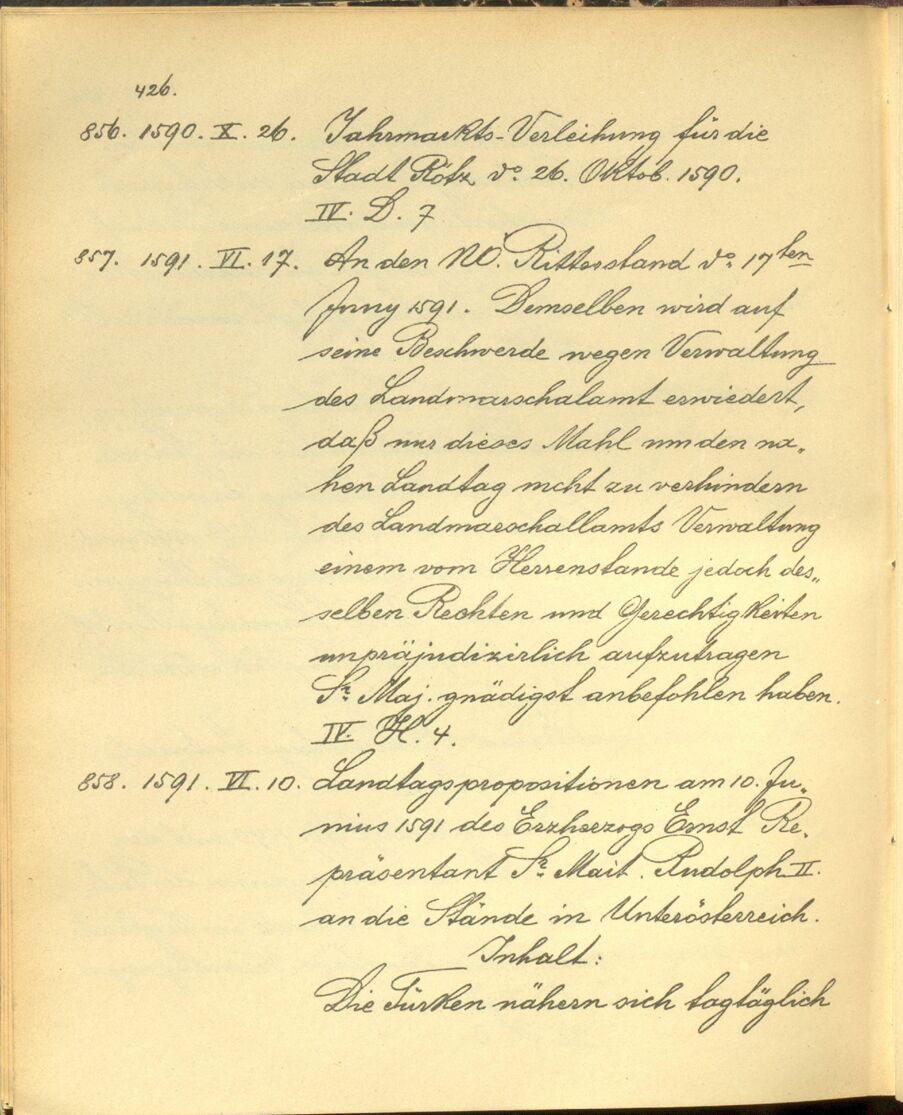 426.
856. 1590. X. 26. Jahrmarkts-Verleihung für die
Stadt Rötz do 26. Oktob. 1590.
IV. D. 7
857. 1591. VI. 17. An den NÖ. Ritterstand do 17ten
Juny 1591. Demselben wird auf
seine Beschwerde wegen Verwaltung
des Landmarschalamt erwiedert,
daß nur dieses Mahl um den na„
hen Landtag nicht zu verhindern
des Landmarschallamts Verwaltung
einem vom Herrenstande jedoch des„
selben Rechten und Gerechtigkeiten
unpräjudizirlich aufzutragen
Sr Maj. gnädigst anbefohlen haben.
IV. H. 4.
858. 1591. VI. 10. Landtagspropositionen am 10. Ju„
nius 1591 des Erzherzogs Ernst Re„
präsentant Sr Mait. Rudolph II.
an die Stände in Unterösterreich.
Inhalt:
Die Türken nähern sich tagtäglich